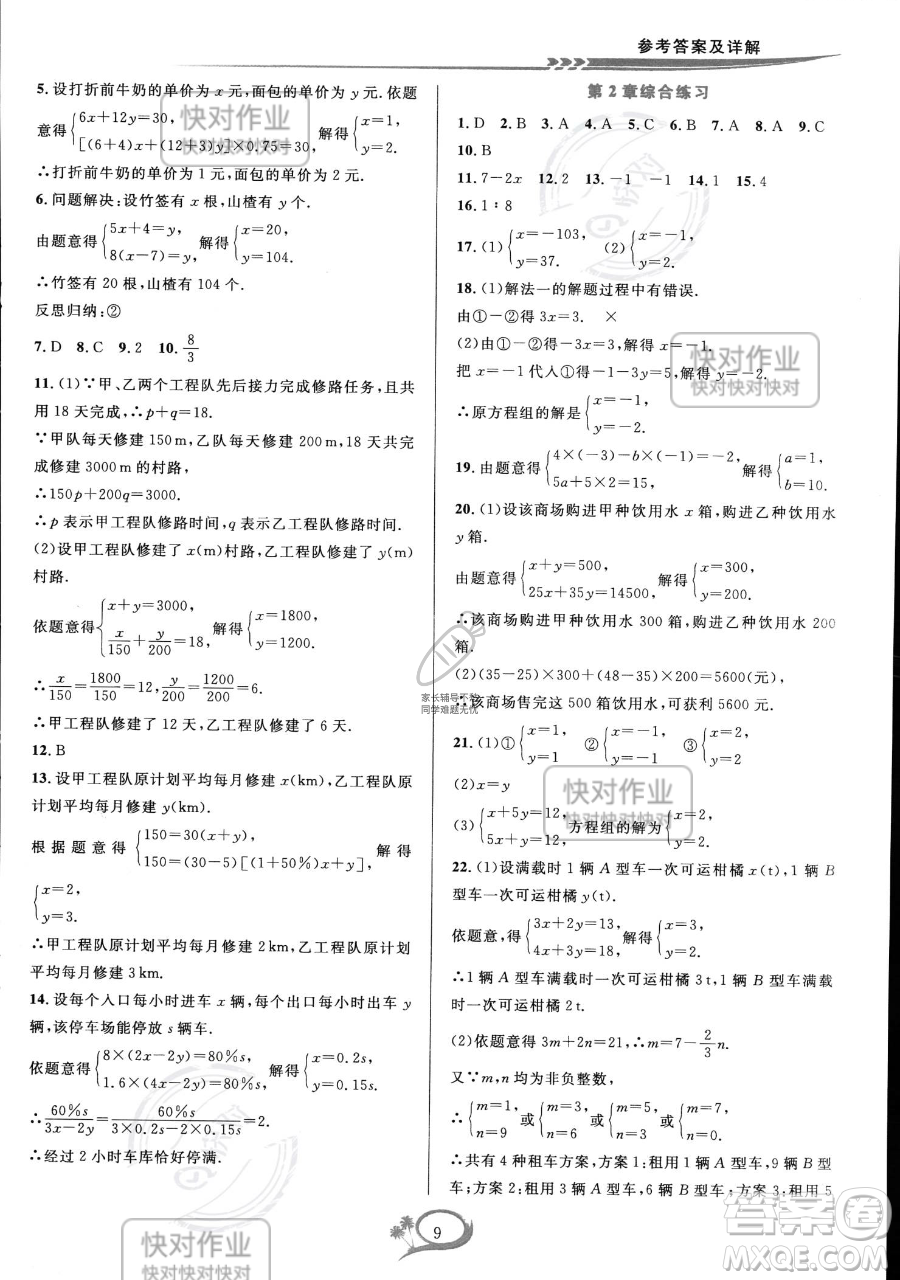 参考答案及详解
5. 设打折前牛奶的单价为 x 元,面包的单价为 y 元.依题
意得{6x+12y=30, [(6+4)x+(12+3)y]×0.75=30, 解得{x=1, y=2.
∴打折前牛奶的单价为 1 元,面包的单价为 2 元.
6. 问题解决:设竹签有 x 根,山楂有 y 个.
由题意得{5x+4=y, 8(x-7)=y, 解得{x=20, y=104.
∴竹签有 20 根,山楂有 104 个.
反思归纳:②
7. D 8. C 9. 2 10. 8/3
11. (1)∵甲、乙两个工程队先后接力完成修路任务,且共
用 18 天完成,∴p+q=18.
∵甲队每天修建 150 m,乙队每天修建 200 m,18 天共
完成修建 3000 m 的村路,
∴150p+200q=3000.
∴p 表示甲工程队修路时间,q 表示乙工程队修路时间.
(2)设甲工程队修建了 x(m)村路,乙工程队修建了 y(m)
村路.
依题意得{x+y=3000, x/150+y/200=18, 解得{x=1800, y=1200.
∴x/150=1800/150=12,y/200=1200/200=6.
∴甲工程队修建了 12 天,乙工程队修建了 6 天.
12. B
13. 设甲工程队原计划平均每月修建 x(km),乙工程队原
计划平均每月修建 y(km).
根据题意得{150=30(x+y), 150=(30-5)[(1+50%)x+y], 解得
{x=2, y=3.
∴甲工程队原计划平均每月修建 2 km,乙工程队原计
划平均每月修建 3 km.
14. 设每个入口每小时进车 x 辆,每个出口每小时出车 y
辆,该停车场能停放 s 辆车.
依题意得{8×(2x-2y)=80%s, 1.6×(4x-2y)=80%s, 解得{x=0.2s, y=0.15s.
∴60%s/(3x-2y)=60%s/(3×0.2s-2×0.15s)=2.
∴经过 2 小时车库恰好停满.
第 2 章综合练习
1. D 2. B 3. A 4. A 5. C 6. B 7. A 8. A 9. C
10. B
11. 7-2x 12. 2 13. -1 -1 14. 1 15. 4
16. 1∶8
17. (1){x=-103, y=37. (2){x=-1, y=2.
18. (1)解法一的解题过程中有错误.
由①-②得 3x=3. ×
(2)由①-②得-3x=3,解得 x=-1.
把 x=-1 代入①得-1-3y=5,解得 y=-2.
∴原方程组的解是{x=-1, y=-2.
19. 由题意得{4×(-3)-b×(-1)=-2, 5a+5×2=15, 解得{a=1, b=10.
20. (1)设该商场购进甲种饮用水 x 箱,购进乙种饮用水
y 箱.
由题意得{x+y=500, 25x+35y=14500, 解得{x=300, y=200.
∴该商场购进甲种饮用水 300 箱,购进乙种饮用水 200
箱.
(2)(35-25)×300+(48-35)×200=5600(元),
∴该商场售完这 500 箱饮用水,可获利 5600 元.
21. (1)①{x=1, y=1 ②{x=2, y=2 ③{x=2, y=2
(2)x=y
(3){x+5y=12, 5x+y=12, 方程组的解为{x=2, y=2.
22. (1)设满载时 1 辆 A 型车一次可运柑橘 x(t),1 辆 B
型车一次可运柑橘 y(t).
依题意,得{3x+2y=13, 4x+3y=18, 解得{x=3, y=2.
∴1 辆 A 型车满载时一次可运柑橘 3 t,1 辆 B 型车满
载时一次可运柑橘 2 t.
(2)依题意得 3m+2n=21,∴m=7-2/3n.
又∵m,n 均为非负整数,
∴{m=1, n=9 或{m=3, n=6 或{m=5, n=3 或{m=7, n=0.
∴共有 4 种租车方案,方案 1:租用 1 辆 A 型车,9 辆 B
型车;方案 2:租用 3 辆 A 型车,6 辆 B 型车;方案 3:租用 5
9
快对作业
快对快对快对
快对作业
快对快对快对
快对作业
快对快对快对
快对作业
快对快对快对
快对作业
家长辅导不愁
同学难题无忧
答案圈
MXQE.COM